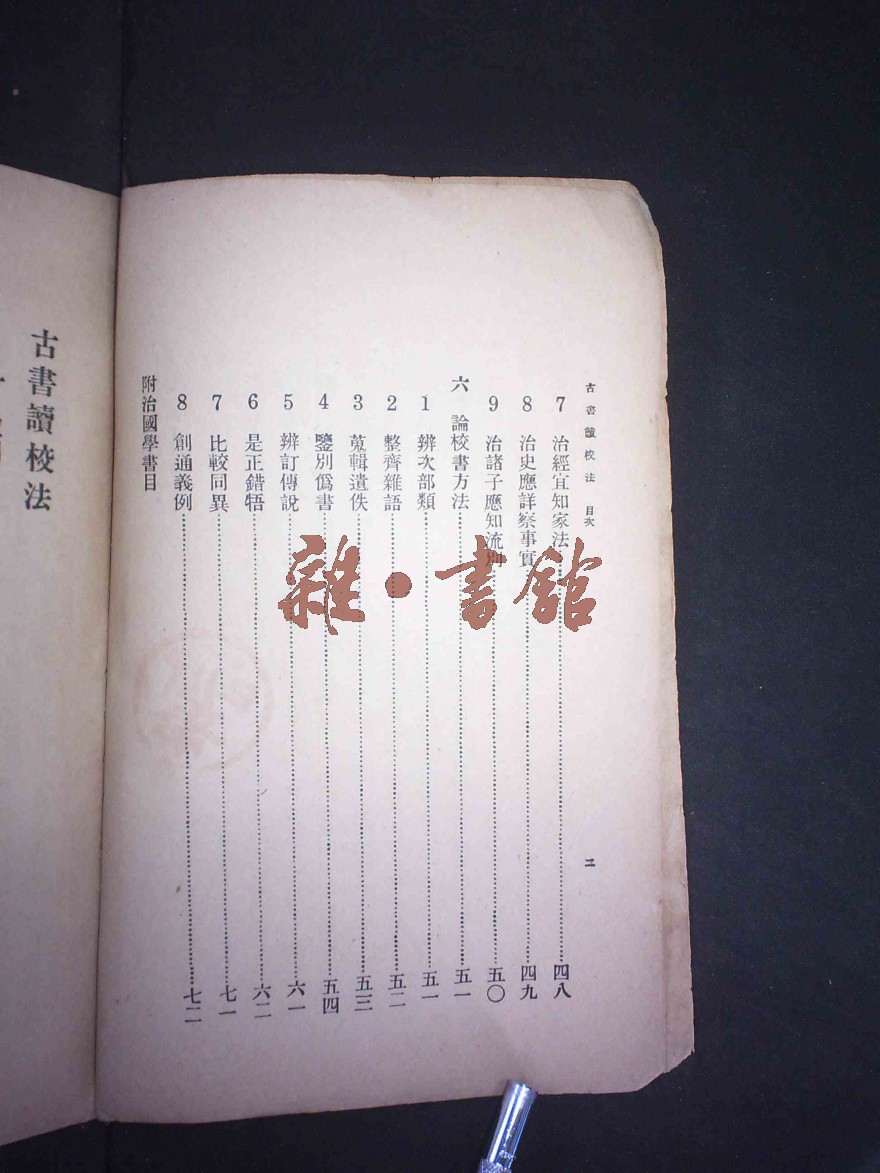 古書讀校法 目次
二
7 治經宜知家法 四八
8 治史應詳察事實 四九
9 治諸子應知流別 五〇
六 論校書方法 五一
1 辨次部類 五一
2 整齊雜語 五二
3 蒐輯遺佚 五三
4 鑒別僞書 五四
5 辨訂傳說 六一
6 是正錯牾 六二
7 比較同異 七一
8 創通義例 七二
附治國學書目
古書讀校法
雜·書館